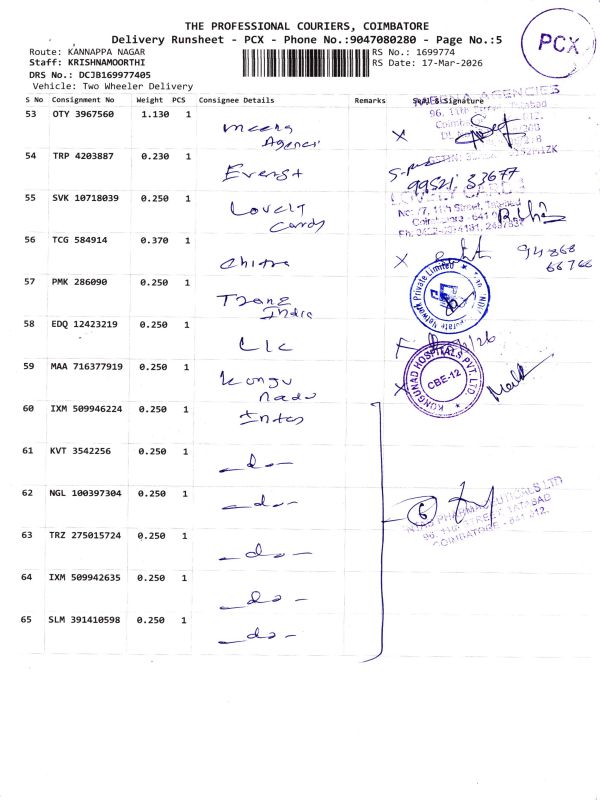 THE PROFESSIONAL COURIERS, COIMBATORE
Delivery Runsheet - PCX - Phone No.:9047080280 - Page No.:5
PCX
Route: KANNAPPA NAGAR
RS No.: 1699774
Staff: KRISHNAMOORTHI
RS Date: 17-Mar-2026
DRS No.: DCJB169977405
Vehicle: Two Wheeler Delivery
S No Consignment No Weight PCS Consignee Details Remarks Seal & Signature
53 OTY 3967560 1.130 1 Meena Agenci
AGENCIES
96, 11th Street, Tatabad
54 TRP 4203887 0.230 1 Everest
99521 33677
55 SVK 10718039 0.250 1 Lovely Cards
LOVELY CARDS
No: 77, 11th Street, Tatabad
56 TCG 584914 0.370 1 Chitra
94868
66766
57 PMK 286090 0.250 1 Trans India
Network Private Limited
58 EDQ 12423219 0.250 1 LIC
59 MAA 716377919 0.250 1 Kongu Nadu
KONGUNAD HOSPITALS PVT. LTD
CBE-12
60 IXM 509946224 0.250 1 Intas
61 KVT 3542256 0.250 1 -do-
62 NGL 100397304 0.250 1 -do-
6
INTAS PHARMACEUTICALS LTD
96, 11th STREET TATABAD
COIMBATORE - 641 012.
63 TRZ 275015724 0.250 1 -do-
64 IXM 509942635 0.250 1 -do-
65 SLM 391410598 0.250 1 -do-